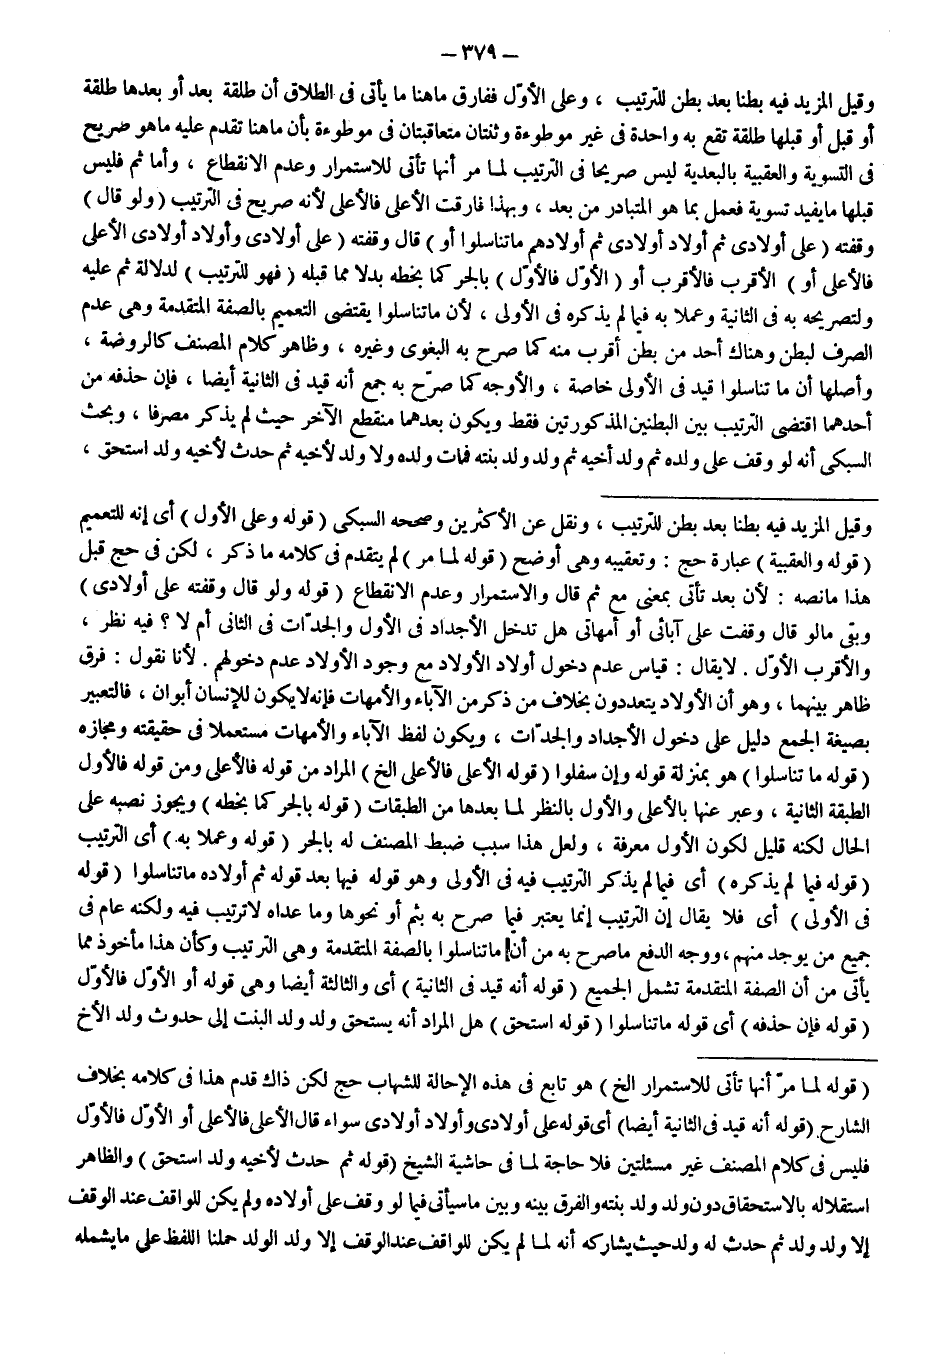 — ٣٧٩ —
وقيل المزيد فيه بطنا بعد بطن للترتيب ، وعلى الأوّل ففارق ماهنا ما يأتى فى الطلاق أن طلقة بعد أو بعدها طلقة
أو قبل أو قبلها طلقة تقع به واحدة فى غير موطوءة وثنتان متعاقبتان فى موطوءة بأن ماهنا تقدم عليه ماهو صريح
فى التسوية والعقبية بالبعدية ليس صريحا فى الترتيب لما مر أنها تأتى للاستمرار وعدم الانقطاع ، وأما ثم فليس
قبلها مايفيد تسوية فعمل بما هو المتبادر من بعد ، وبهذا فارقت الأعلى فالأعلى لأنه صريح فى الترتيب ( ولو قال )
وقفته ( على أولادى ثم أولاد أولادى ثم أولادهم ماتناسلوا أو ) قال وقفته ( على أولادى وأولاد أولادى الأعلى
فالأعلى أو ) الأقرب فالأقرب أو ( الأوّل فالأوّل ) بالجر كما بخطه بدلا مما قبله ( فهو للترتيب ) لدلالة ثم عليه
ولتصريحه به فى الثانية وعملا به فيما لم يذكره فى الأولى ، لأن ماتناسلوا يقتضى التعميم بالصفة المتقدمة وهى عدم
الصرف لبطن وهناك أحد من بطن أقرب منه كما صرح به البغوى وغيره ، وظاهر كلام المصنف كالروضة ،
وأصلها أن ما تناسلوا قيد فى الأولى خاصة ، والأوجه كما صرّح به جمع أنه قيد فى الثانية أيضا ، فإن حذفه من
أحدهما اقتضى الترتيب بين البطنين المذكورتين فقط ويكون بعدهما منقطع الآخر حيث لم يذكر مصرفا ، وبحث
السبكى أنه لو وقف على ولده ثم ولد أخيه ثم ولد ولد بنته فمات ولده ولا ولد لأخيه ثم حدث لأخيه ولد استحق ،
وقيل المزيد فيه بطنا بعد بطن للترتيب ، ونقل عن الأكثرين وصححه السبكى ( قوله وعلى الأول ) أى إنه للتعميم
( قوله والعقبية ) عبارة حج : وتعقيبه وهى أوضح ( قوله لما مر ) لم يتقدم فى كلامه ما ذكر ، لكن فى حج قبل
هذا مانصه : لأن بعد تأتى بمعنى مع ثم قال والاستمرار وعدم الانقطاع ( قوله ولو قال وقفته على أولادى )
وبقى مالو قال وقفت على آبائى أو أمهاتى هل تدخل الأجداد فى الأول والجدّات فى الثانى أم لا ؟ فيه نظر ،
والأقرب الأوّل . لايقال : قياس عدم دخول أولاد الأولاد مع وجود الأولاد عدم دخولهم . لأنا نقول : فرق
ظاهر بينهما ، وهو أن الأولاد يتعددون بخلاف من ذكر من الآباء والأمهات فإنه لايكون للإنسان أبوان ، فالتعبير
بصيغة الجمع دليل على دخول الأجداد والجدّات ، ويكون لفظ الآباء والأمهات مستعملا فى حقيقته ومجازه
( قوله ما تناسلوا ) هو بمنزلة قوله وإن سفلوا ( قوله الأعلى فالأعلى الخ ) المراد من قوله فالأعلى ومن قوله فالأول
الطبقة الثانية ، وعبر عنها بالأعلى والأول بالنظر لما بعدها من الطبقات ( قوله بالجر كما بخطه ) ويجوز نصبه على
الحال لكنه قليل لكون الأول معرفة ، ولعل هذا سبب ضبط المصنف له بالجر ( قوله وعملا به ) أى الترتيب
( قوله فيما لم يذكره ) أى فيما لم يذكر الترتيب فيه فى الأولى وهو قوله فيها بعد قوله ثم أولاده ماتناسلوا ( قوله
فى الأولى ) أى فلا يقال إن الترتيب إنما يعتبر فيما صرح به بثم أو نحوها وما عداه لاترتيب فيه ولكنه عام فى
جميع من يوجد منهم ، ووجه الدفع ماصرح به من أن ماتناسلوا بالصفة المتقدمة وهى الترتيب وكأن هذا مأخوذ مما
يأتى من أن الصفة المتقدمة تشمل الجميع ( قوله أنه قيد فى الثانية ) أى والثالثة أيضا وهى قوله أو الأوّل فالأوّل
( قوله فإن حذفه ) أى قوله ماتناسلوا ( قوله استحق ) هل المراد أنه يستحق ولد ولد البنت إلى حدوث ولد الأخ
( قوله لما مرّ أنها تأتى للاستمرار الخ ) هو تابع فى هذه الإحالة للشهاب حج لكن ذاك قدم هذا فى كلامه بخلاف
الشارح . ( قوله أنه قيد فى الثانية أيضا ) أى قوله على أولادى وأولاد أولادى سواء قال الأعلى فالأعلى أو الأوّل فالأوّل
فليس فى كلام المصنف غير مسئلتين فلا حاجة لما فى حاشية الشيخ ( قوله ثم حدث لأخيه ولد استحق ) والظاهر
استقلاله بالاستحقاق دون ولد ولد بنته والفرق بينه وبين ماسيأتى فيما لو وقف على أولاده ولم يكن للواقف عند الوقف
إلا ولد ولد ثم حدث له ولد حيث يشاركه أنه لما لم يكن للواقف عند الوقف إلا ولد الولد حملنا اللفظ على مايشمله